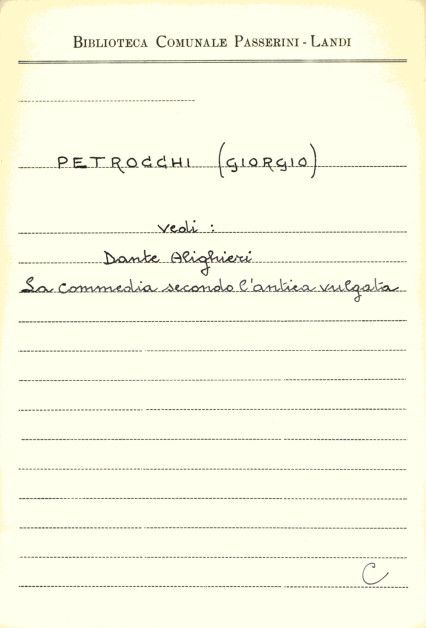 BIBLIOTECA COMUNALE PASSERINI - LANDI
PETROCCHI (GIORGIO)
vedi :
Dante Alighieri
La commedia secondo l'antica vulgata
C